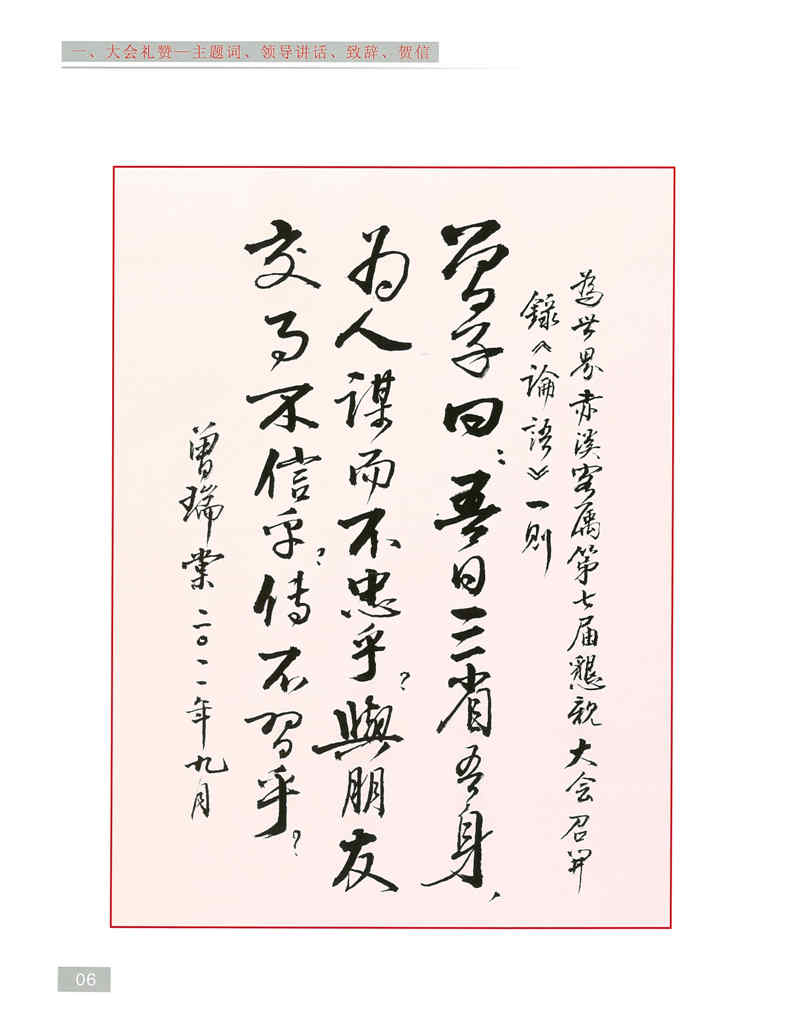 一、大会礼赞—主题词、领导讲话、致辞、贺信
為世界赤溪客属第七届懇親大会召開
錄《論語》一則
曾子曰：吾日三省吾身、
为人謀而不忠乎？與朋友
交而不信乎？傳不習乎？
曾瑞棠二〇一一年九月
06